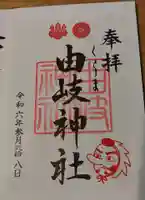 奉拝
くらま
由岐神社
令和六年参月弐拾八日